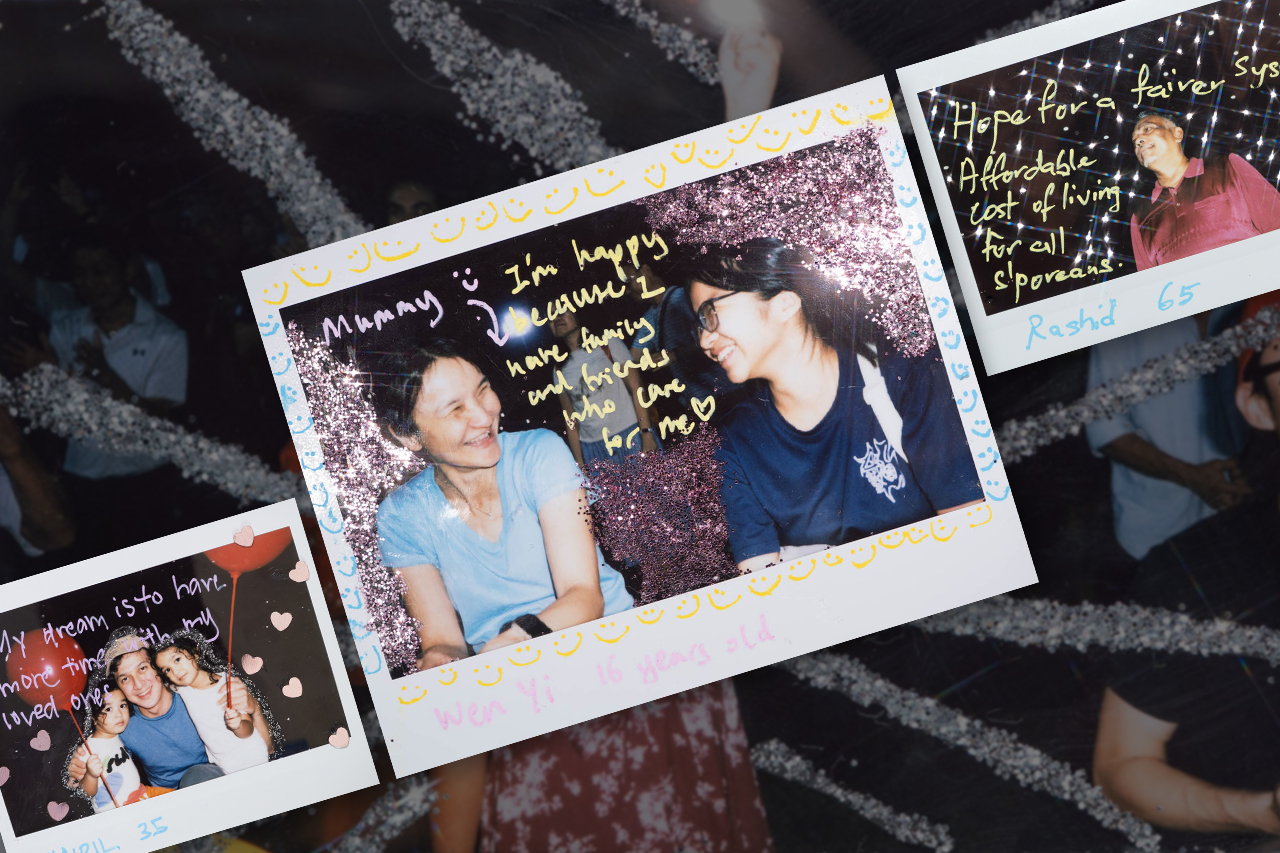 Mummy
I'm happy
because I
have family
and friends
who care
for me
Wen Yi 16 years old
Hope for a fairer sys
Affordable
cost of living
for all
s'poreans.
Rashid 65
My dream is to have
more time with my
loved ones
35